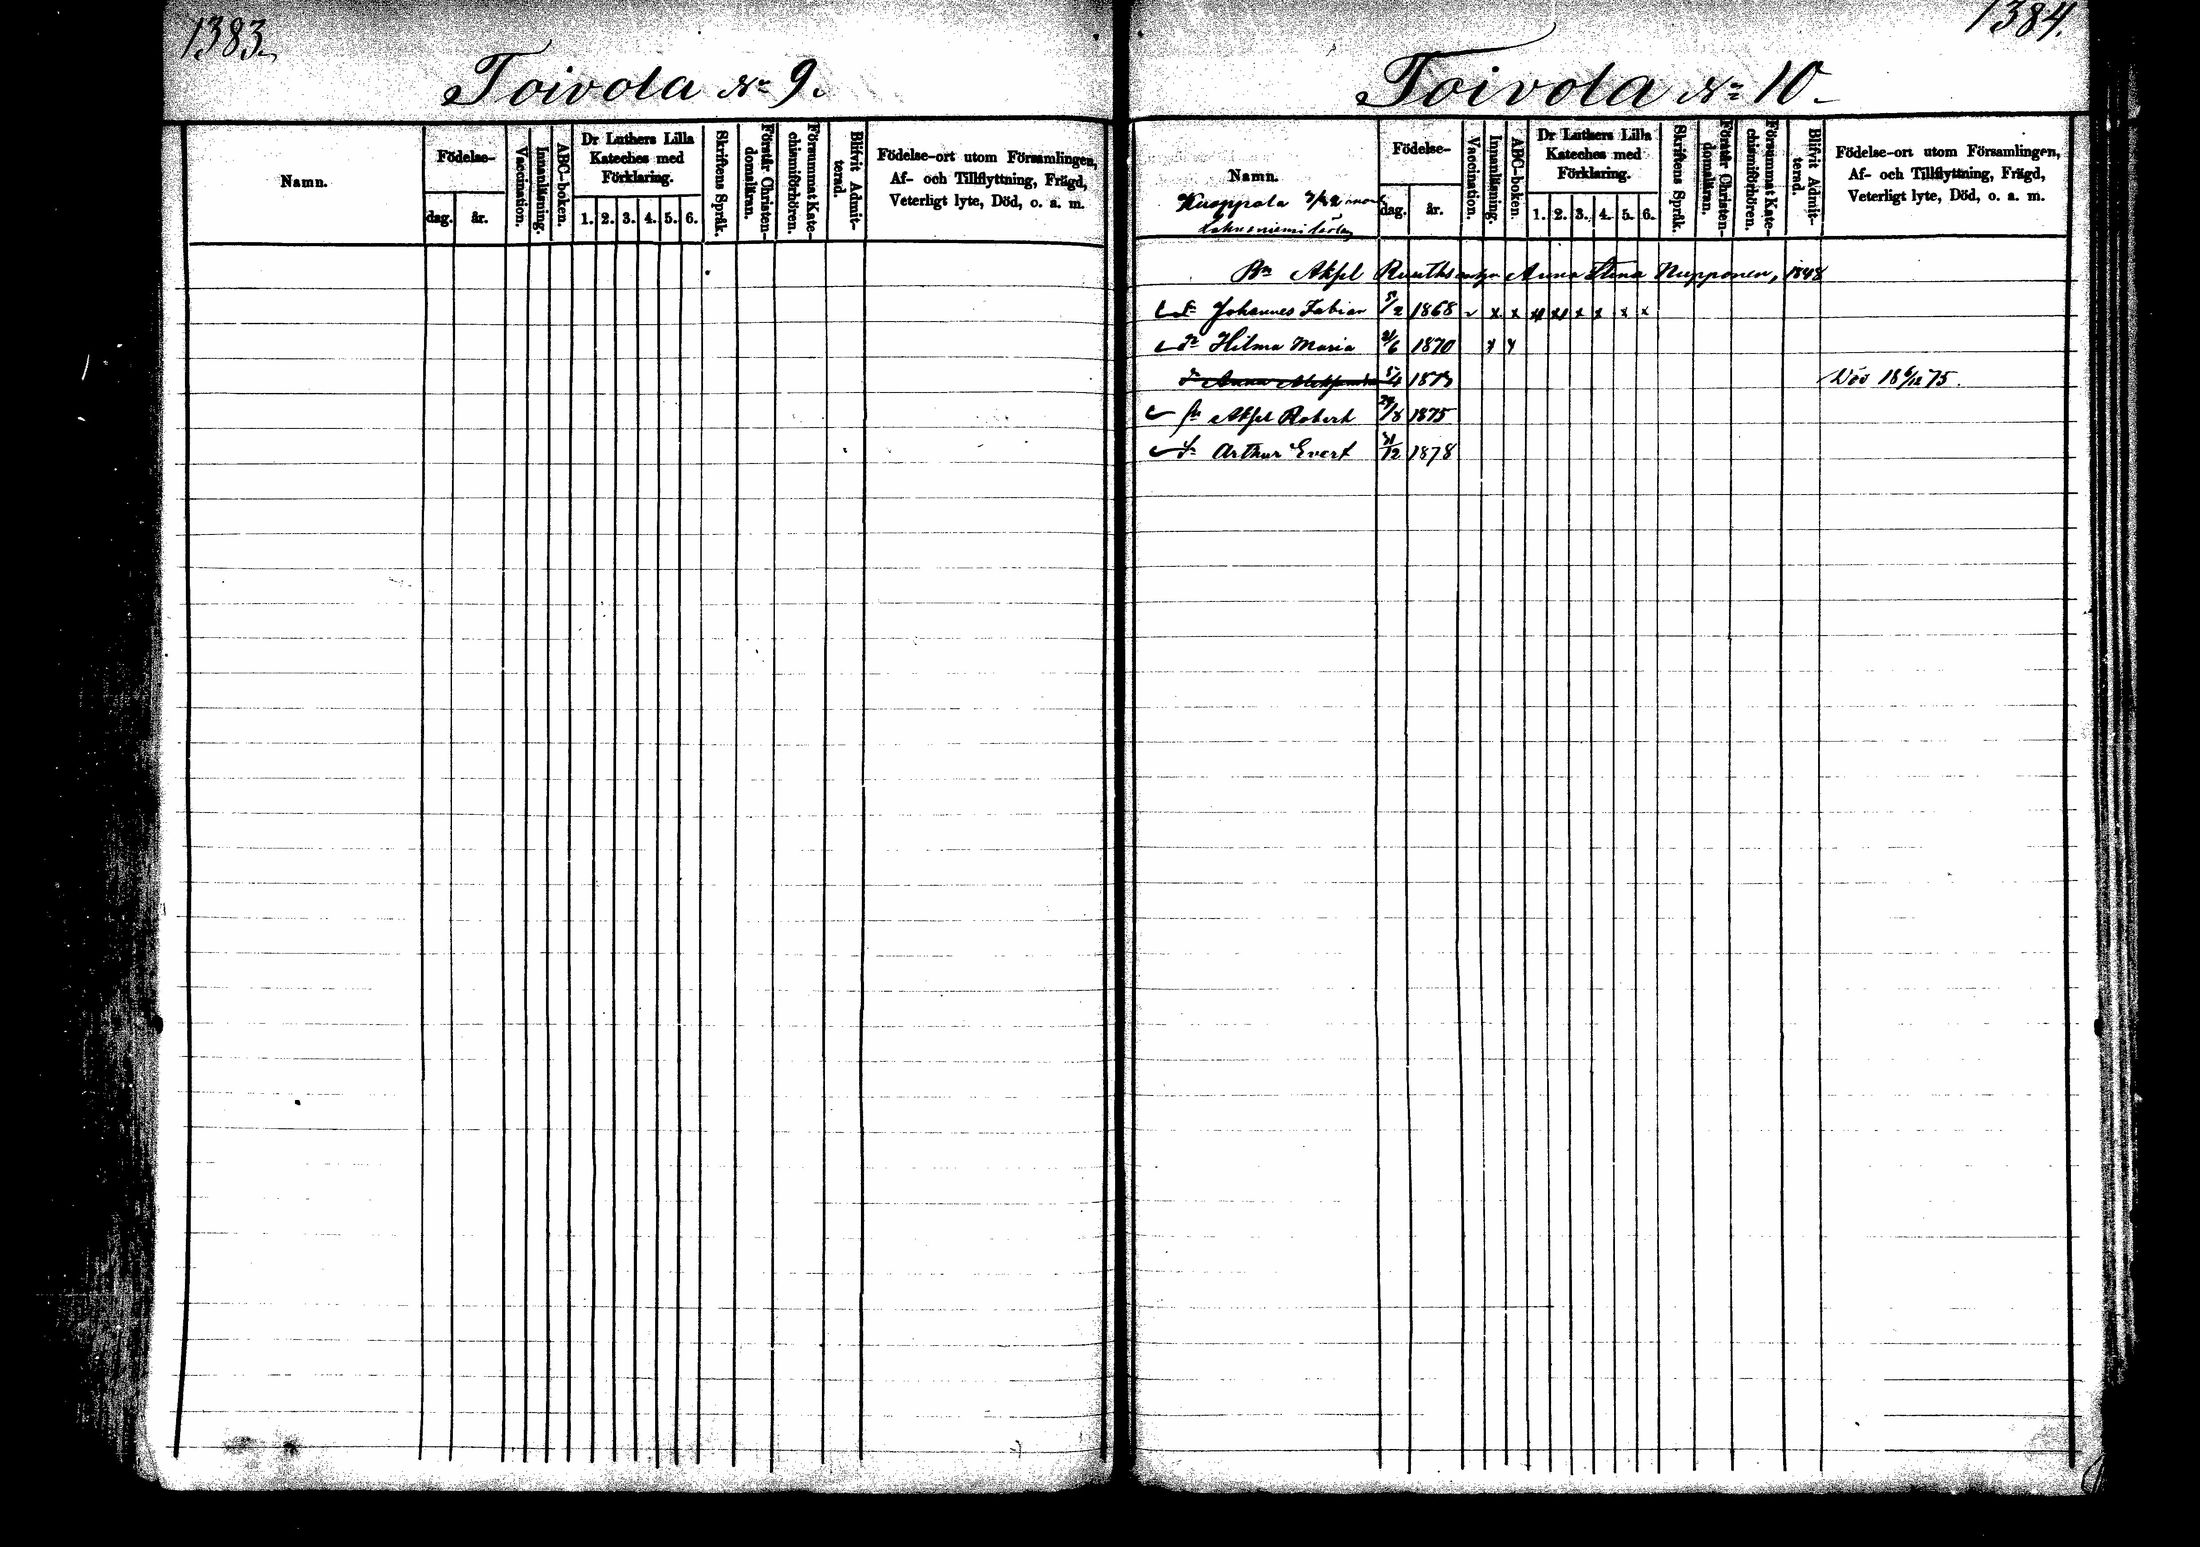 1383.
Toivola No 9.
Namn.
Födelse-
dag. år.
Vaccination.
Innanläsning.
ABC-boken.
Dr Luthers Lilla
Kateches med
Förklaring.
1. 2. 3. 4. 5. 6.
Skriftens Språk.
Förstår Christen-
domsläran.
Försummat Kate-
chismiförhören.
Blifvit Admit-
terad.
Födelse-ort utom Församlingen,
Af- och Tillflyttning, Frägd,
Veterligt lyte, Död, o. a. m.
1384.
Toivola No 10
Namn.
Kuoppala
Födelse-
dag. år.
Vaccination.
Innanläsning.
ABC-boken.
Dr Luthers Lilla
Kateches med
Förklaring.
1. 2. 3. 4. 5. 6.
Skriftens Språk.
Förstår Christen-
domsläran.
Försummat Kate-
chismiförhören.
Blifvit Admit-
terad.
Födelse-ort utom Församlingen,
Af- och Tillflyttning, Frägd,
Veterligt lyte, Död, o. a. m.
Bn Aksel Ruuths Anna Stina Nupponen, 1848
Johannes Fabian 5/2 1868 x x x x x x x x
Hilma Maria /6 1870 x x
Anna 5/4 1873 Död 18 6/12 75.
Aksel Robert 29/8 1875
Arthur Evert 31/12 1878